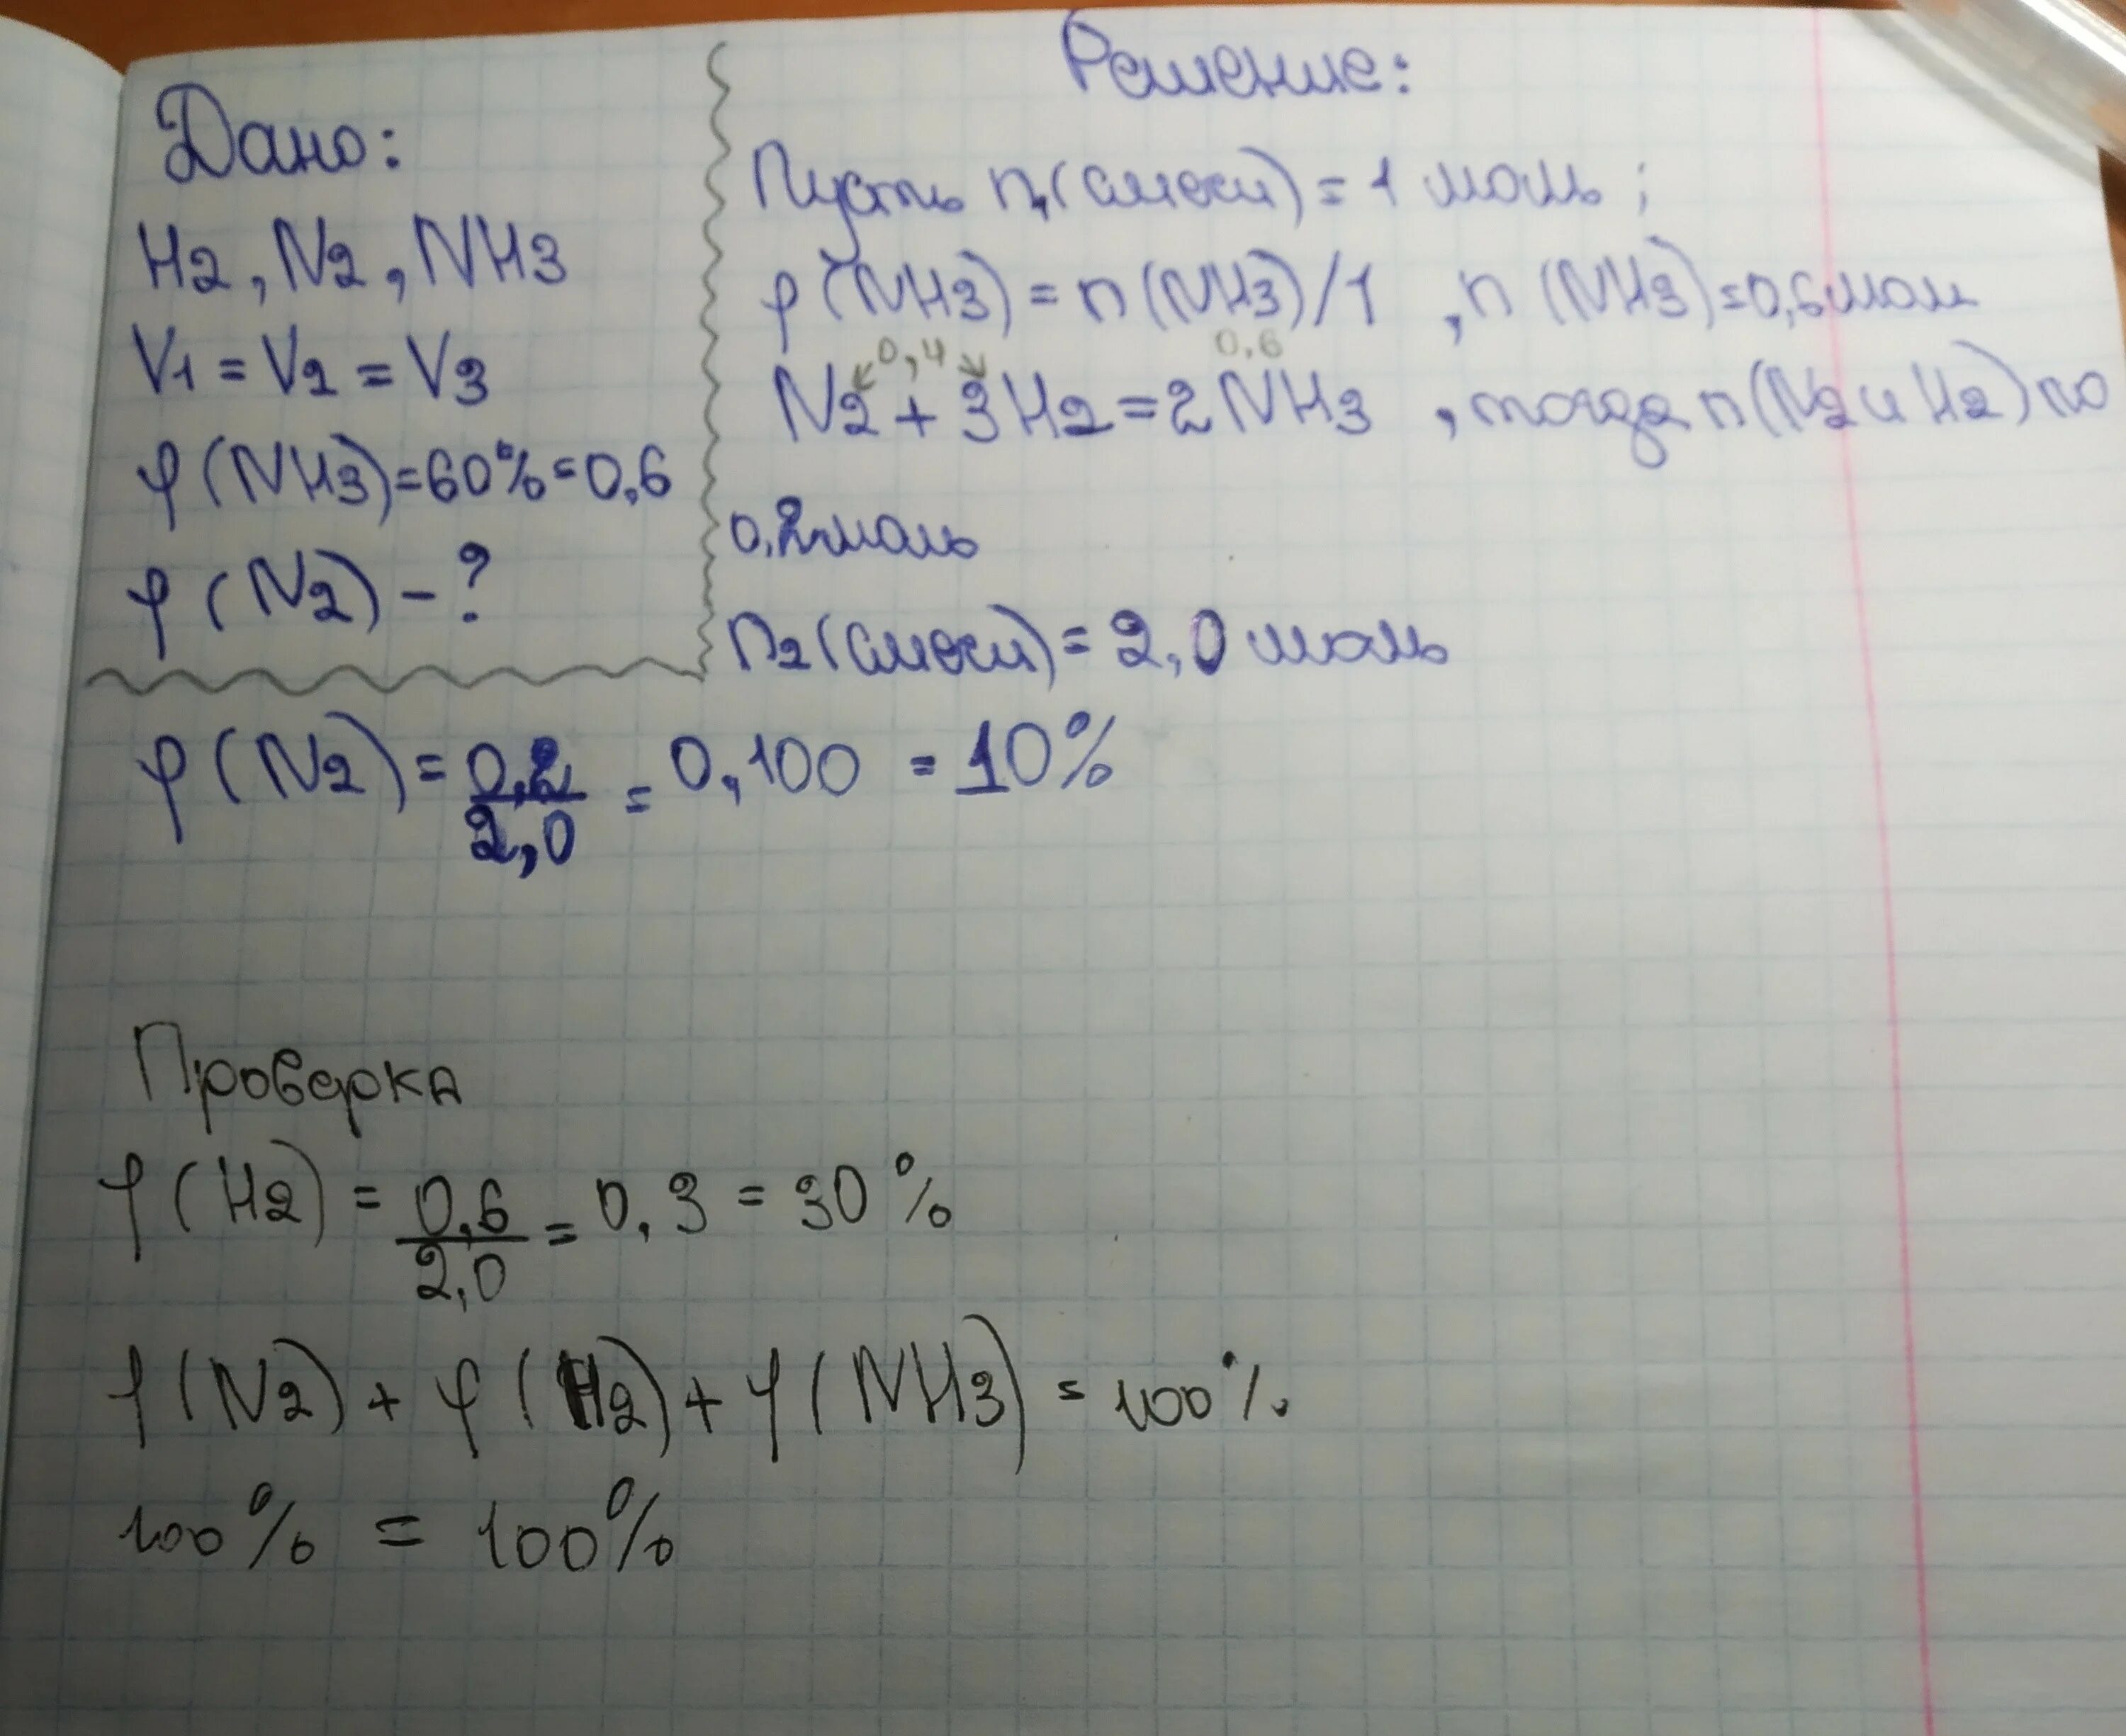 Дано:
H2, N2, NH3
V1 = V2 = V3
φ(NH3)=60%=0,6
φ(N2) - ?
Решение:
Пусть n1(смеси) = 1 моль;
φ(NH3) = n(NH3)/1, n(NH3)=0,6моль
0,4 0,6
N2 + 3H2 = 2NH3, тогда n(N2 и H2) по
0,2моль
n2(смеси) = 2,0 моль
φ(N2) = 0,2/2,0 = 0,100 = 10%
Проверка
φ(H2) = 0,6/2,0 = 0,3 = 30%
φ(N2) + φ(H2) + φ(NH3) = 100%
100% = 100%